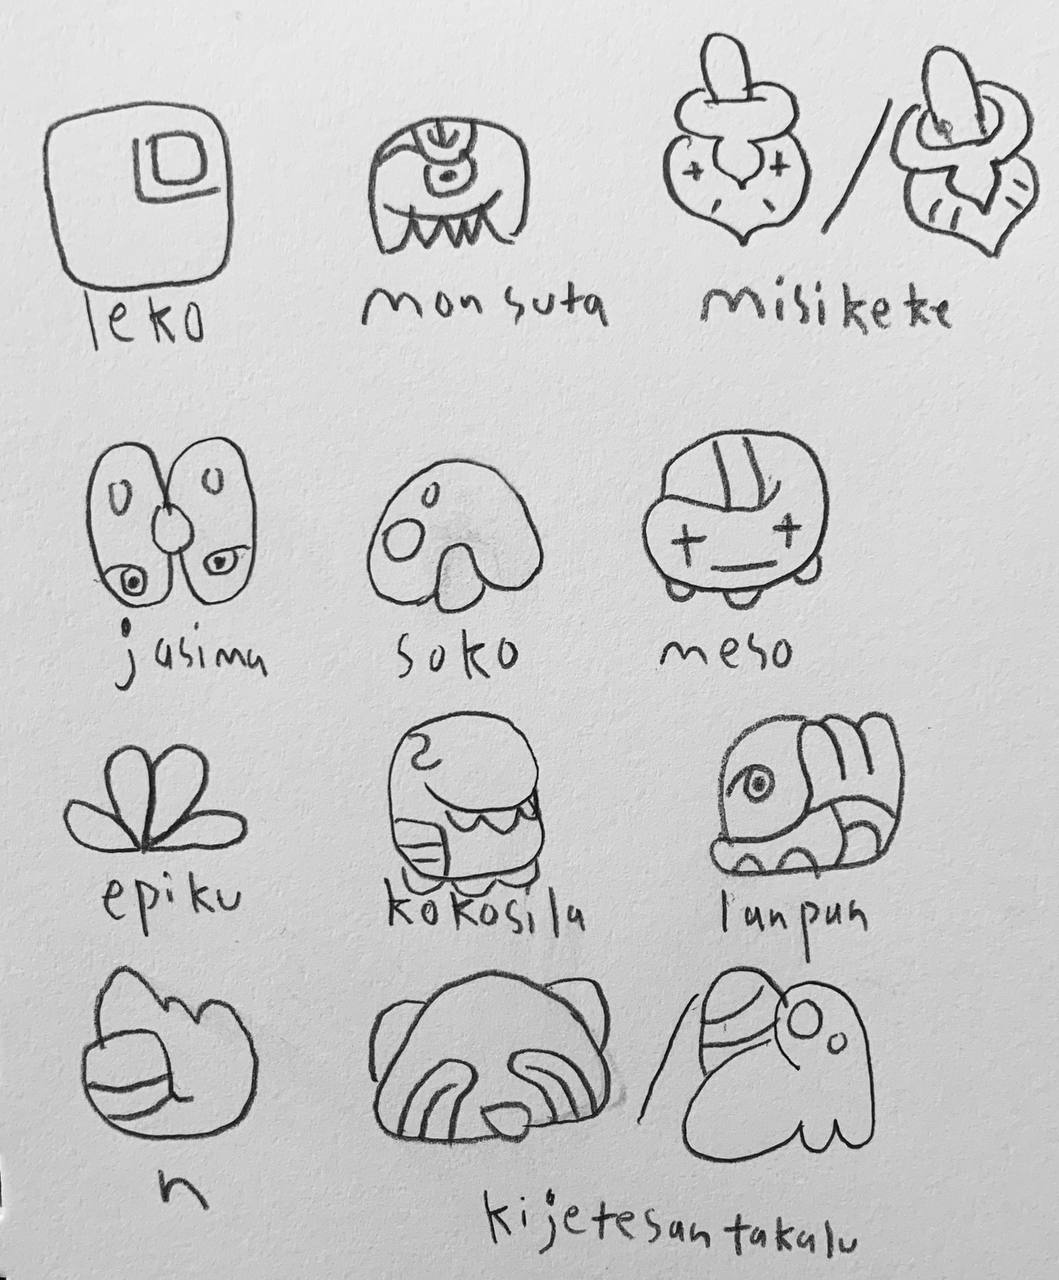 leko monsuta misikeke
jasima soko meso
epiku kokosila lanpan
n kijetesantakalu